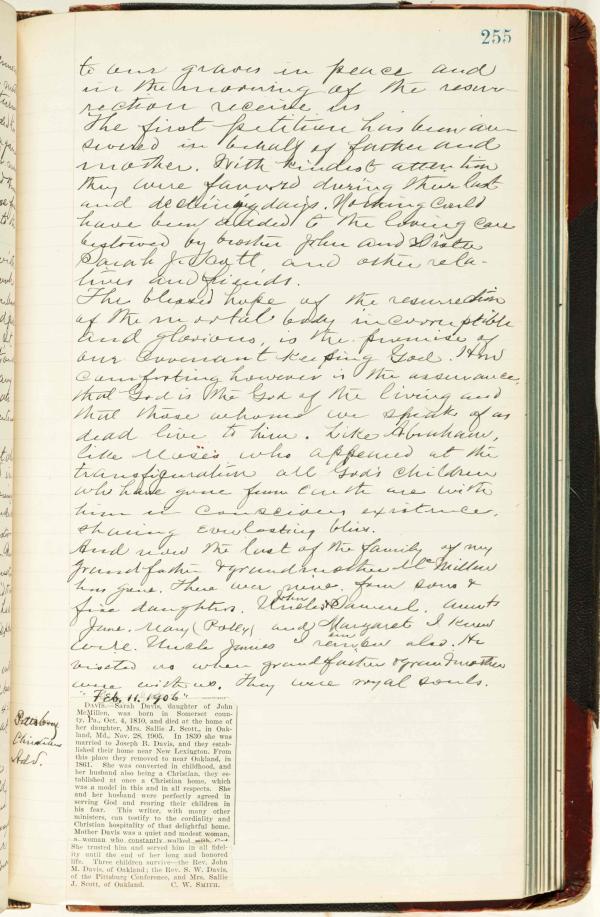 255
to our graves in peace and
in the morning of the resur-
rection receive us
The first petition has been an-
swered in behalf of father and
mother. With kindest attention
they were favored during their last
and declining days. Nothing could
have been added to the loving care
bestowed by brother John and Sister
Sarah J. Scott, and other rela-
tives and friends.
The blessed hope of the resurrection
of the mortal body incorruptible
and glorious, is the promise of
our Covenant keeping God. How
comforting however is the assurance,
that God is the God of the living and
that those whome we speak of as
dead live to him. Like Abraham,
like Moses who appeared at the
transfiguration all God's children
who have gone from Earth are with
him in conscious existence,
sharing everlasting bliss.
And now the last of the family of my
grandfather & grandmother McMillen
has gone. There were nine, four sons &
five daughters. Uncles John & Samuel. Aunts
Jane. Mary (Polly) and Margaret I knew
well. Uncle James I remember also. He
visited us when grandfather & grandmother
were with us. They were royal souls.
"Feb. 11. 1906"
Pittsburg
Christian
Adv.
DAVIS.—Sarah Davis, daughter of John
McMillen, was born in Somerset coun-
ty, Pa., Oct. 4, 1810, and died at the home of
her daughter, Mrs. Sallie J. Scott, in Oak-
land, Md., Nov. 28, 1905. In 1839 she was
married to Joseph B. Davis, and they estab-
lished their home near New Lexington. From
this place they removed to near Oakland, in
1861. She was converted in childhood, and
her husband also being a Christian, they es-
tablished at once a Christian home, which
was a model in this and in all respects. She
and her husband were perfectly agreed in
serving God and rearing their children in
his fear. This writer, with many other
ministers, can testify to the cordiality and
Christian hospitality of that delightful home.
Mother Davis was a quiet and modest woman,
a woman who constantly walked with God.
She trusted him and served him in all fidel-
ity until the end of her long and honored
life. Three children survive—the Rev. John
M. Davis, of Oakland; the Rev. S. W. Davis,
of the Pittsburg Conference, and Mrs. Sallie
J. Scott, of Oakland. C. W. SMITH.